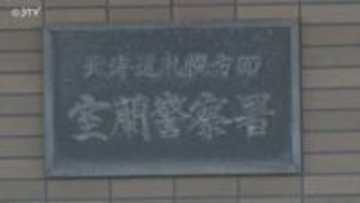 ©STV
北海道札幌方面
室蘭警察署